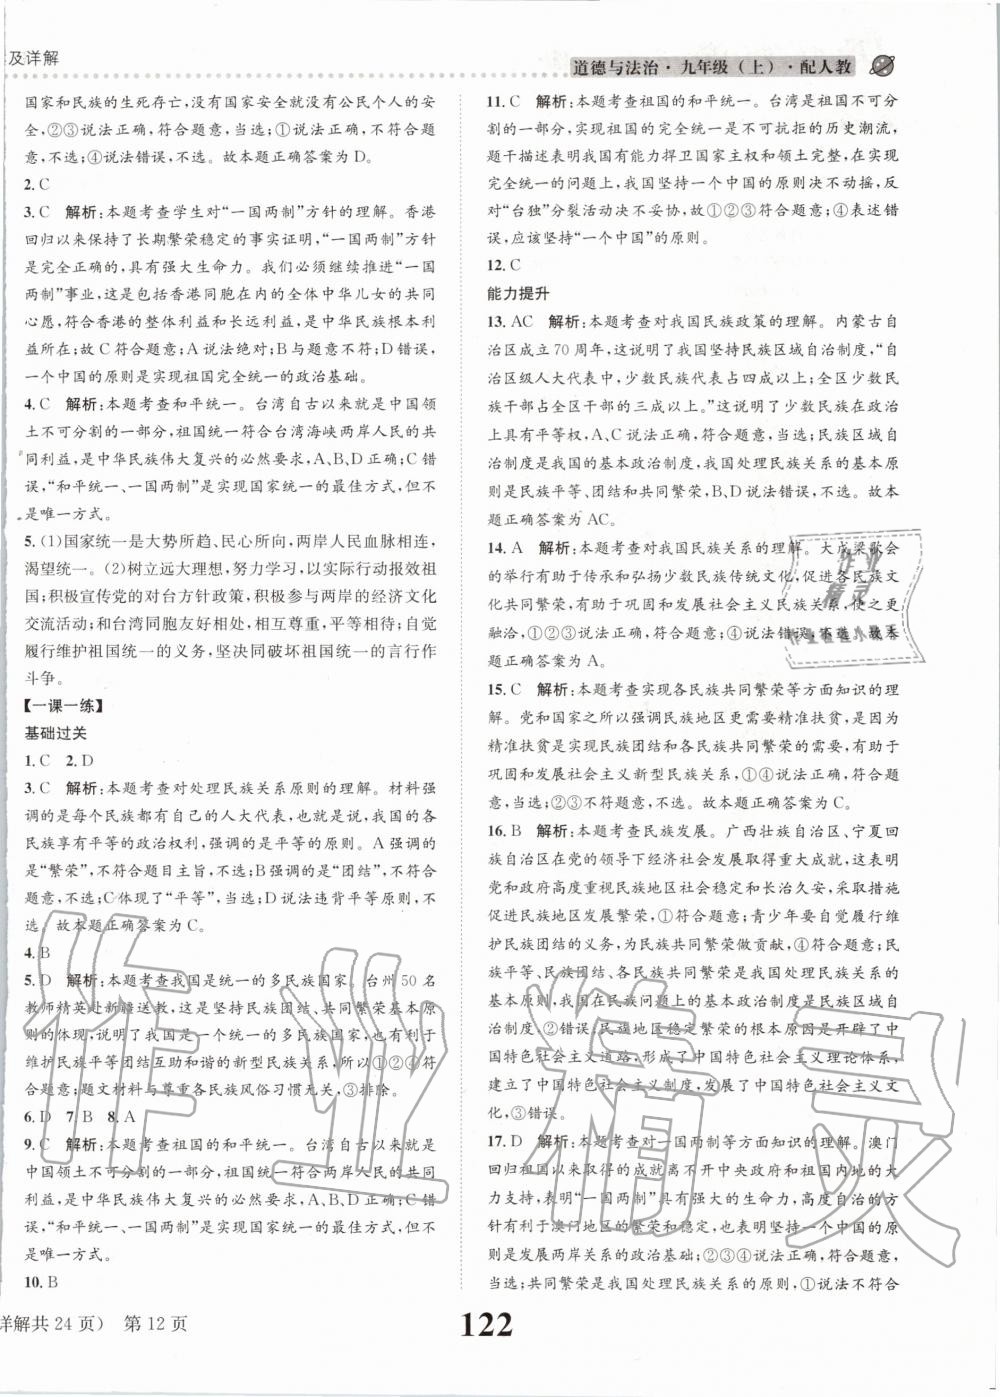 及详解
道德与法治·九年级（上）·配人教
国家和民族的生死存亡,没有国家安全就没有公民个人的安
全,②③说法正确,符合题意,当选;①说法正确,不符合题
意,不选;④说法错误,不选。故本题正确答案为 D。
2. C
3. C 解析:本题考查学生对“一国两制”方针的理解。香港
回归以来保持了长期繁荣稳定的事实证明,“一国两制”方针
是完全正确的,具有强大生命力。我们必须继续推进“一国
两制”事业,这是包括香港同胞在内的全体中华儿女的共同
心愿,符合香港的整体利益和长远利益,是中华民族根本利
益所在;故 C 符合题意;A 说法绝对;B 与题意不符;D 错误,
一个中国的原则是实现祖国完全统一的政治基础。
4. C 解析:本题考查和平统一。台湾自古以来就是中国领
土不可分割的一部分,祖国统一符合台湾海峡两岸人民的共
同利益,是中华民族伟大复兴的必然要求,A、B、D 正确;C 错
误,“和平统一、一国两制”是实现国家统一的最佳方式,但不
是唯一方式。
5. (1)国家统一是大势所趋、民心所向,两岸人民血脉相连,
渴望统一。(2)树立远大理想,努力学习,以实际行动报效祖
国;积极宣传党的对台方针政策,积极参与两岸的经济文化
交流活动;和台湾同胞友好相处,相互尊重,平等相待;自觉
履行维护祖国统一的义务,坚决同破坏祖国统一的言行作
斗争。
【一课一练】
基础过关
1. C 2. D
3. C 解析:本题考查对处理民族关系原则的理解。材料强
调的是每个民族都有自己的人大代表,也就是说,我国的各
民族享有平等的政治权利,强调的是平等的原则。A 强调的
是“繁荣”,不符合题目主旨,不选;B 强调的是“团结”,不符合
题意,不选;C 体现了“平等”,当选;D 说法违背平等原则,不
选。故本题正确答案为 C。
4. B
5. D 解析:本题考查我国是统一的多民族国家。台州 50 名
教师精英赴新疆送教,这是坚持民族团结、共同繁荣基本原
则的体现,说明了我国是一个统一的多民族国家,也有利于
维护民族平等团结互助和谐的新型民族关系,所以①②④符
合题意;题文材料与尊重各民族风俗习惯无关,③排除。
6. D 7. B 8. A
9. C 解析:本题考查祖国的和平统一。台湾自古以来就是
中国领土不可分割的一部分,祖国统一符合两岸人民的共同
利益,是中华民族伟大复兴的必然要求,A、B、D 正确;C 错
误,“和平统一、一国两制”是实现国家统一的最佳方式,但不
是唯一方式。
10. B
11. C 解析:本题考查祖国的和平统一。台湾是祖国不可分
割的一部分,实现祖国的完全统一是不可抗拒的历史潮流,
题干描述表明我国有能力捍卫国家主权和领土完整,在实现
完全统一的问题上,我国坚持一个中国的原则决不动摇,反
对“台独”分裂活动决不妥协,故①②③符合题意;④表述错
误,应该坚持“一个中国”的原则。
12. C
能力提升
13. AC 解析:本题考查对我国民族政策的理解。内蒙古自
治区成立 70 周年,这说明了我国坚持民族区域自治制度,“自
治区级人大代表中,少数民族代表占四成以上;全区少数民
族干部占全区干部的三成以上。”这说明了少数民族在政治
上具有平等权,A、C 说法正确,符合题意,当选;民族区域自
治制度是我国的基本政治制度,我国处理民族关系的基本原
则是民族平等、团结和共同繁荣,B、D 说法错误,不选。故本
题正确答案为 AC。
14. A 解析:本题考查对我国民族关系的理解。大戍梁歌会
的举行有助于传承和弘扬少数民族传统文化,促进各民族文
化共同繁荣,有利于发展社会主义民族关系,使之更
融洽,①②③说法正确,符合题意,当选;④说法错误,不选。故本
题正确答案为 A。
15. C 解析:本题考查实现各民族共同繁荣等方面知识的理
解。党和国家之所以强调民族地区更需要精准扶贫,是因为
精准扶贫是实现民族团结和各民族共同繁荣的需要,有助于
巩固和发展社会主义新型民族关系,①④说法正确,符合题
意,当选;②③不符合题意,不选。故本题正确答案为 C。
16. B 解析:本题考查民族发展。广西壮族自治区、宁夏回
族自治区在党的领导下经济社会发展取得重大成就,这表明
党和政府高度重视民族地区社会稳定和长治久安,采取措施
促进民族地区发展繁荣,①符合题意;青少年要自觉履行维
护民族团结的义务,为民族共同繁荣做贡献,④符合题意;民
族平等、民族团结、各民族共同繁荣是我国处理民族关系的
基本原则,我国在民族问题上的基本政治制度是民族区域自
治制度,②错误;民族地区稳定繁荣的根本原因是开辟了中
国特色社会主义道路,形成了中国特色社会主义理论体系,
建立了中国特色社会主义制度,发展了中国特色社会主义文
化,③错误。
17. D 解析:本题考查对一国两制等方面知识的理解。澳门
回归祖国以来取得的成就离不开中央政府和祖国内地的大
力支持,表明“一国两制”具有强大的生命力,高度自治的方
针有利于澳门地区的繁荣和稳定,也一定意义上
是发展两岸关系的政治基础;②③④说法正确,符合题意,
当选;共同繁荣是我国处理民族关系的原则,①说法不符合
详解共 24 页） 第 12 页
122
作业精灵
作业
精灵
作业检查小助手